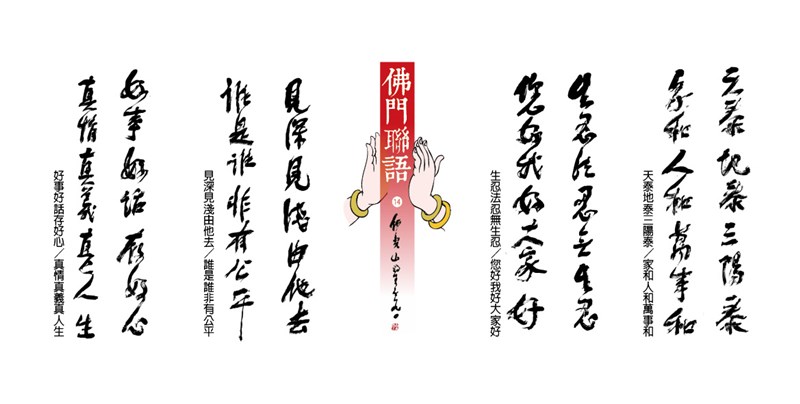 天泰地泰三陽泰
家和人和萬事和
天泰地泰三陽泰／家和人和萬事和
生忍法忍無生忍
您好我好大家好
生忍法忍無生忍／您好我好大家好
佛門聯語
14
佛光山星雲
見深見淺由他去
誰是誰非有公平
見深見淺由他去／誰是誰非有公平
好事好話存好心
真情真義真人生
好事好話存好心／真情真義真人生